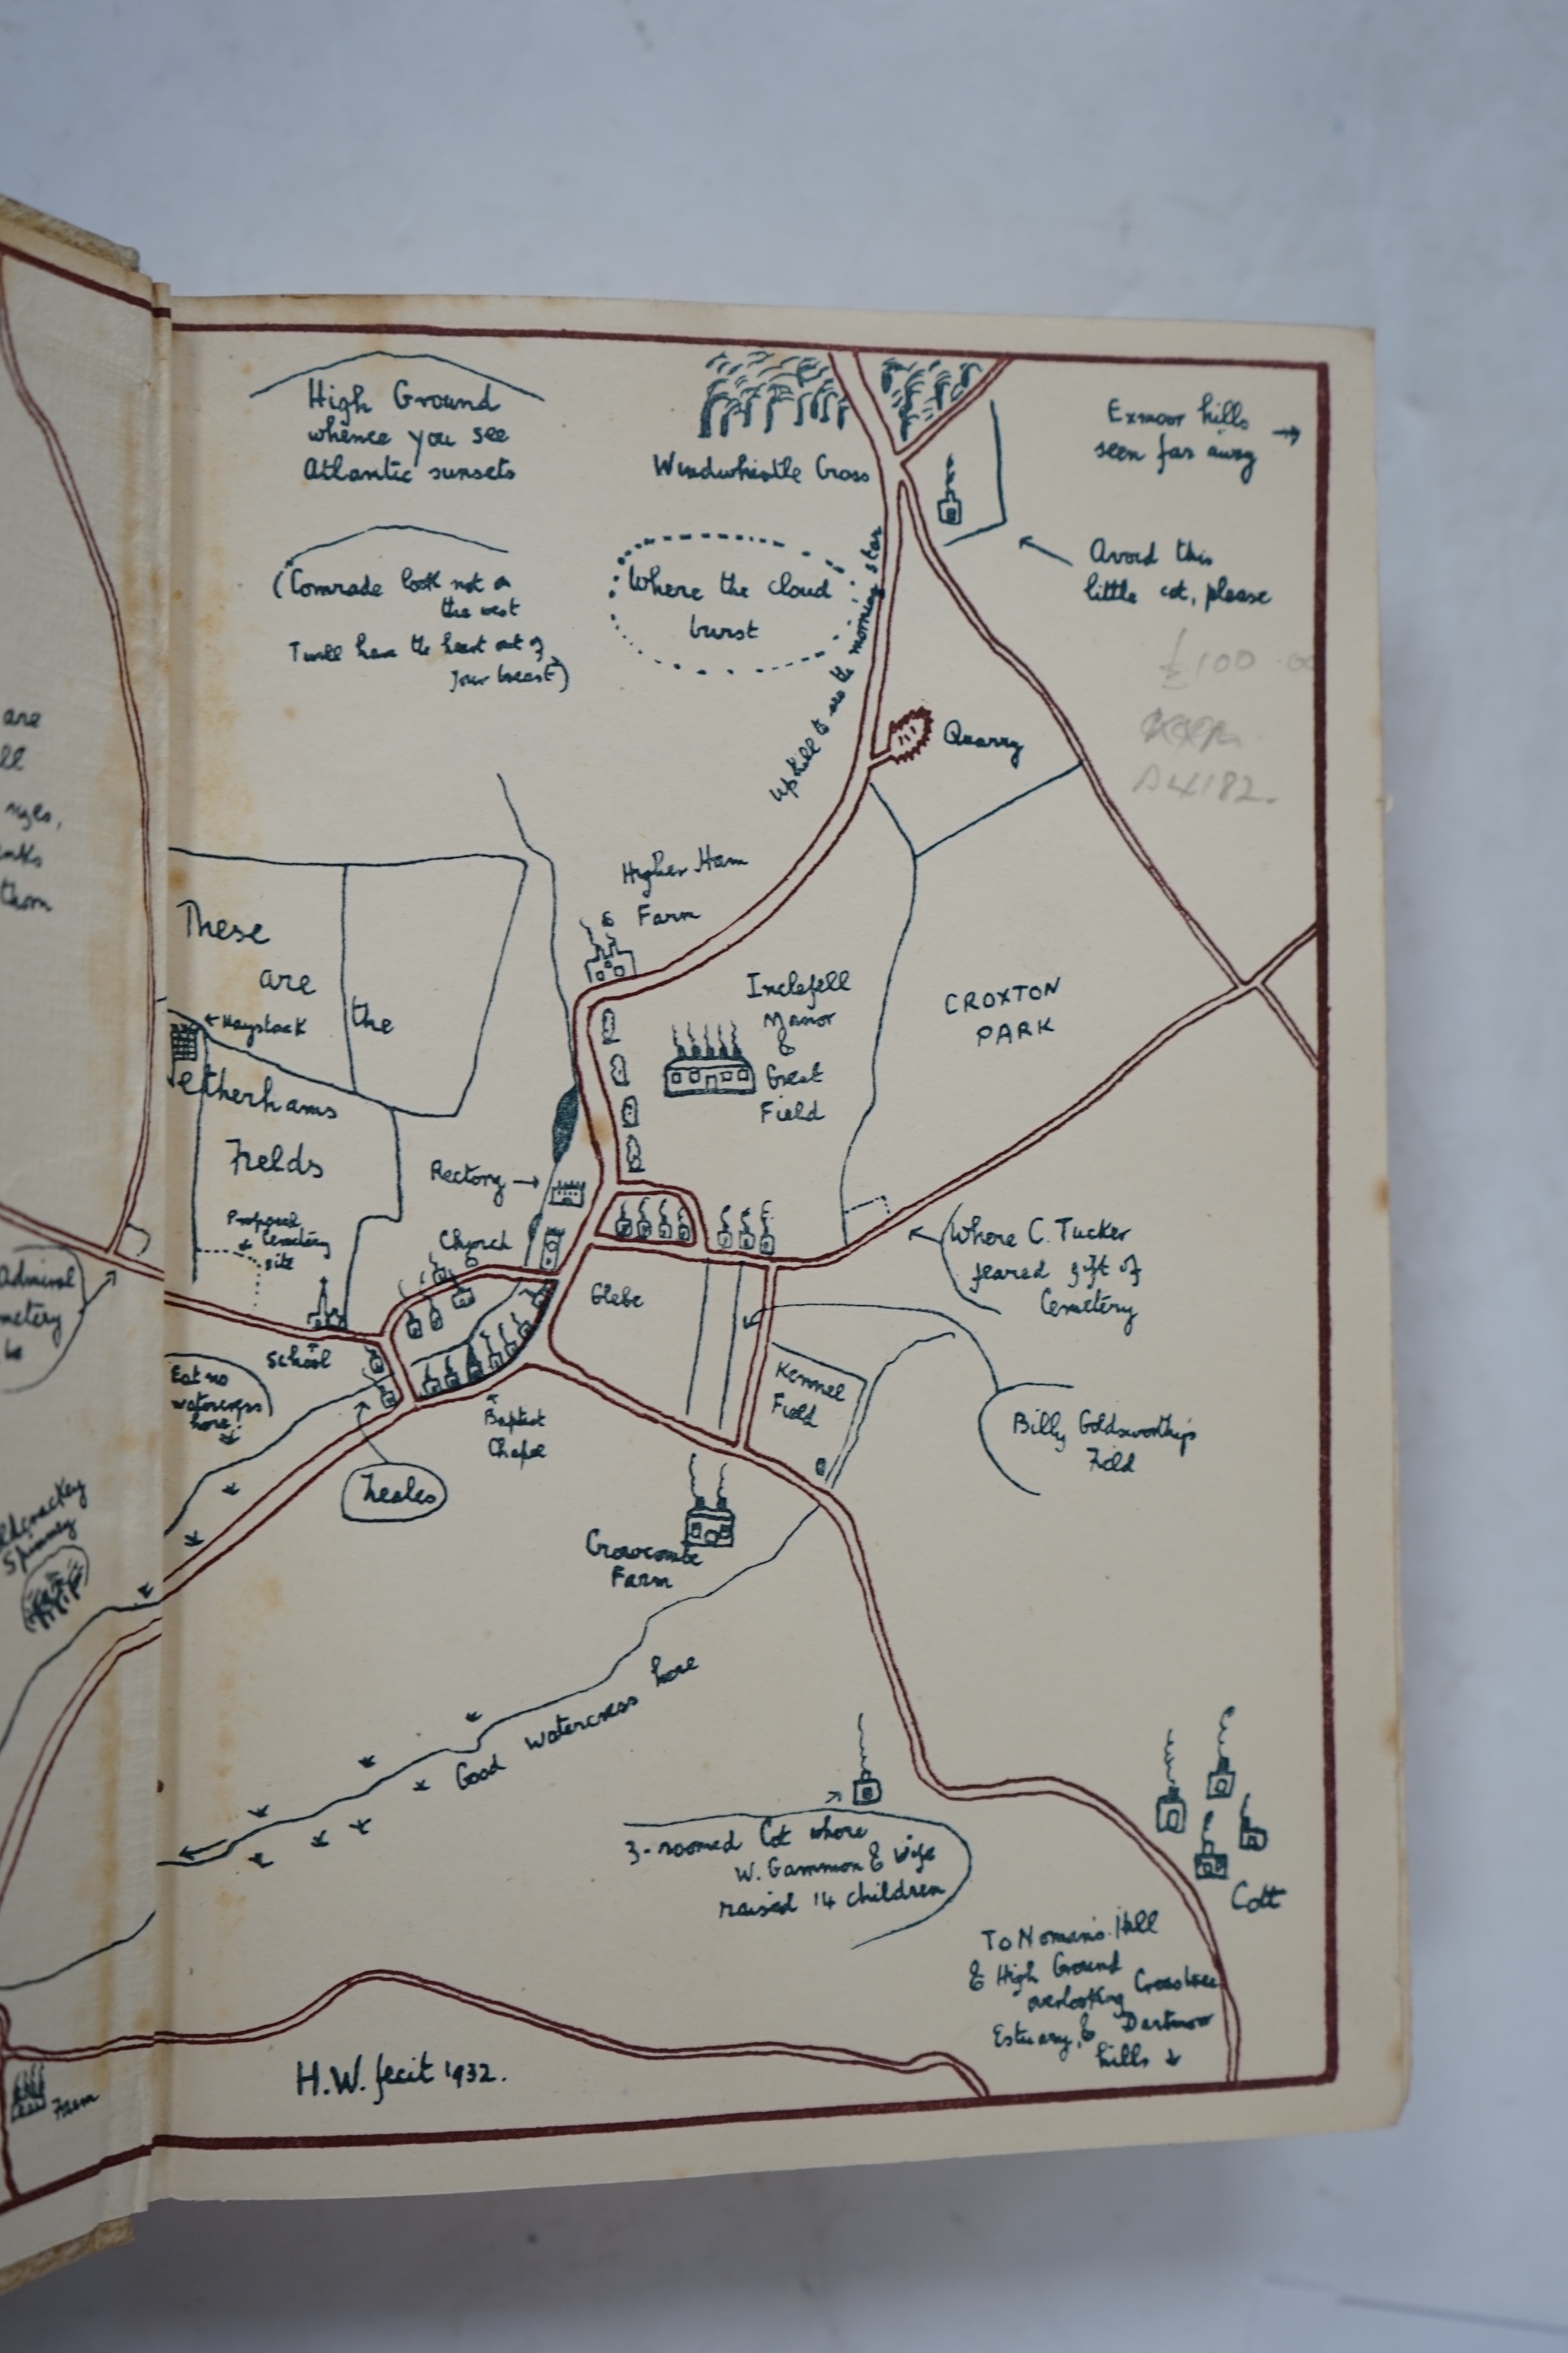 High Ground
whence you see
Atlantic sunsets
Windwhistle Cross
Exmoor hills →
seen far away
(Comrade look not on
the west
Twill have the heart out of
your breast)
Where the cloud
burst
Avoid this
little cot, please
uphill to see the morning star
£100.00
A4182.
Quarry
are
ll
nks
thorn
Higher Ham
Farm
These
are
the
← Haystack
etherhams
Fields
Inclefell
Manor
&
Great
Field
CROXTON
PARK
Rectory →
Proposed
Cemetery
site
Church
Where C. Tucker
feared gift of
Cemetery
Admiral
metery
Glebe
School
Eat no
watercress
here!
Kennel
Field
Baptist
Chapel
Billy Goldsworthy's
Field
Zeales
Spinney
Crowcombe
Farm
Good watercress here
3-roomed Cot where
W. Gammon & Wife
raised 14 children
Cott
To Noman's Hill
& High Ground
overlooking Crosstree
Estuary, & Dartmoor
hills ↓
H.W. fecit 1932.
Farm